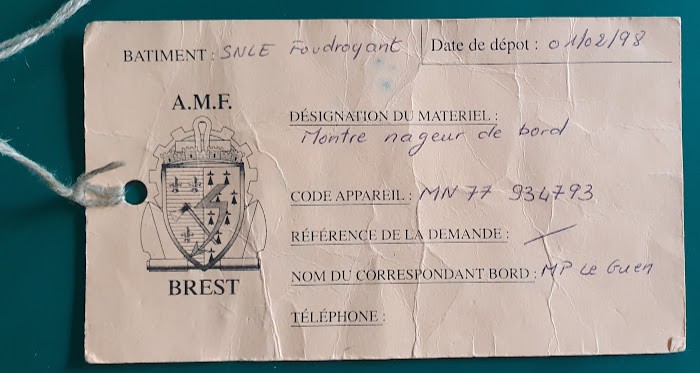 BATIMENT : SNLE Foudroyant
Date de dépot : 01/02/98
A.M.F.
BREST
DÉSIGNATION DU MATERIEL :
Montre nageur de bord
CODE APPAREIL : MN 77 934793
RÉFÉRENCE DE LA DEMANDE : /
NOM DU CORRESPONDANT BORD : MP Le Guen
TÉLÉPHONE :